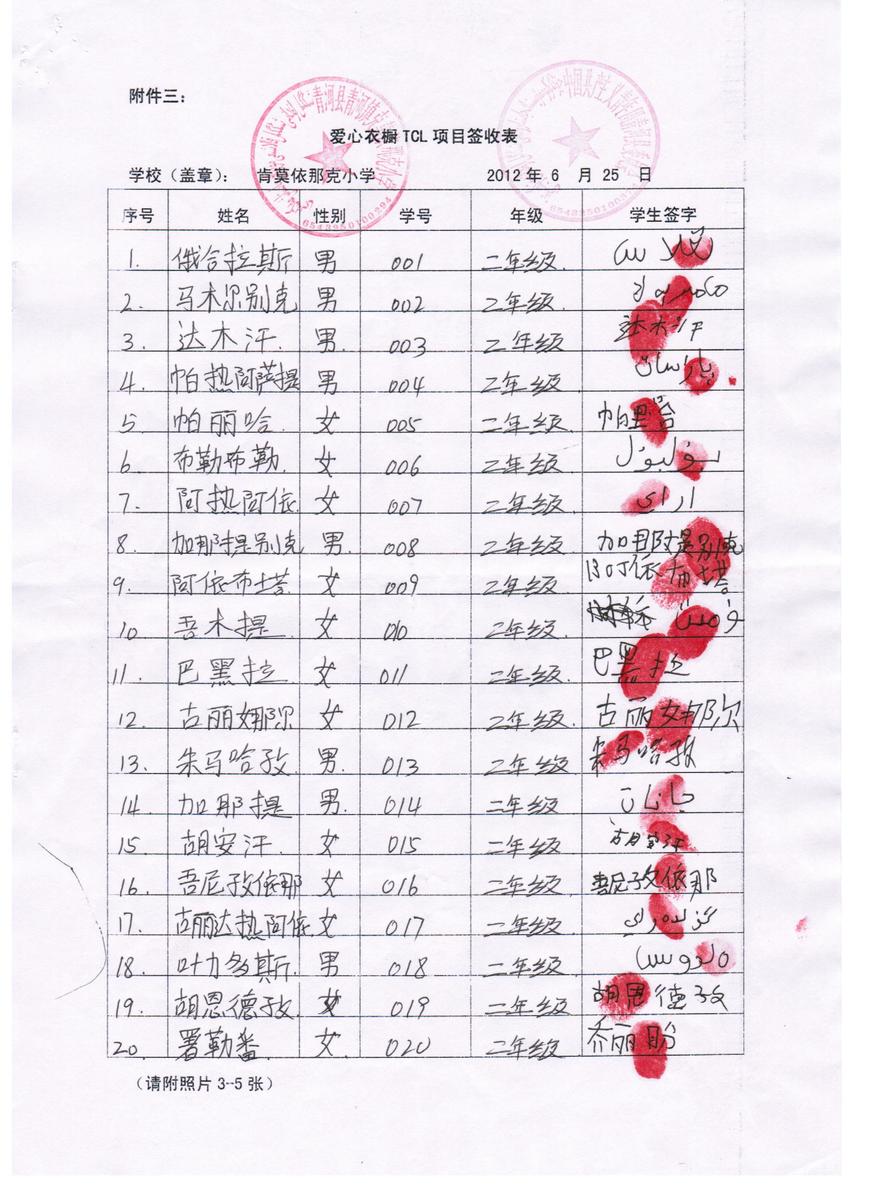 附件三：
爱心衣橱 TCL 项目签收表
学校（盖章）： 肯莫依那克小学 2012 年 6 月 25 日
序号 姓名 性别 学号 年级 学生签字
1. 俄合拉斯 男 001 二年级.
2. 马木尔别克 男 002 二年级.
3. 达木汗. 男. 003 二年级 达木汗
4. 帕热阿萨提 男 004 二年级. پارسات
5 帕丽哈. 女 005 二年级. 帕里哈
6. 布勒布勒. 女 006 二年级. بۇلبۇل
7. 阿热阿依. 女 007 二年级. اراي
8. 加那提别克 男. 008 二年级. 加那提别克
9. 阿依布塔 女 009 二年级. 阿依布塔
10 吾木提. 女 010 二年级.
11. 巴黑拉. 女 011 二年级. 巴黑拉
12. 古丽娜尔 女 012 二年级. 古丽娜尔
13. 朱马哈孜. 男. 013 二年级 朱马哈孜
14 加那提 男. 014 二年级. جانات
15 胡安汗. 女 015 二年级. 胡安汗
16. 吾尼孜依那 女 016 二年级. 吾尼孜依那
17. 古丽达热阿依 女 017 二年级.
18. 叶力多斯. 男 018 二年级.
19. 胡恩德孜. 女 019 二年级. 胡恩德孜
20. 署勒番. 女. 020 二年级. 乔丽盼
（请附照片 3--5 张）
6543950100294